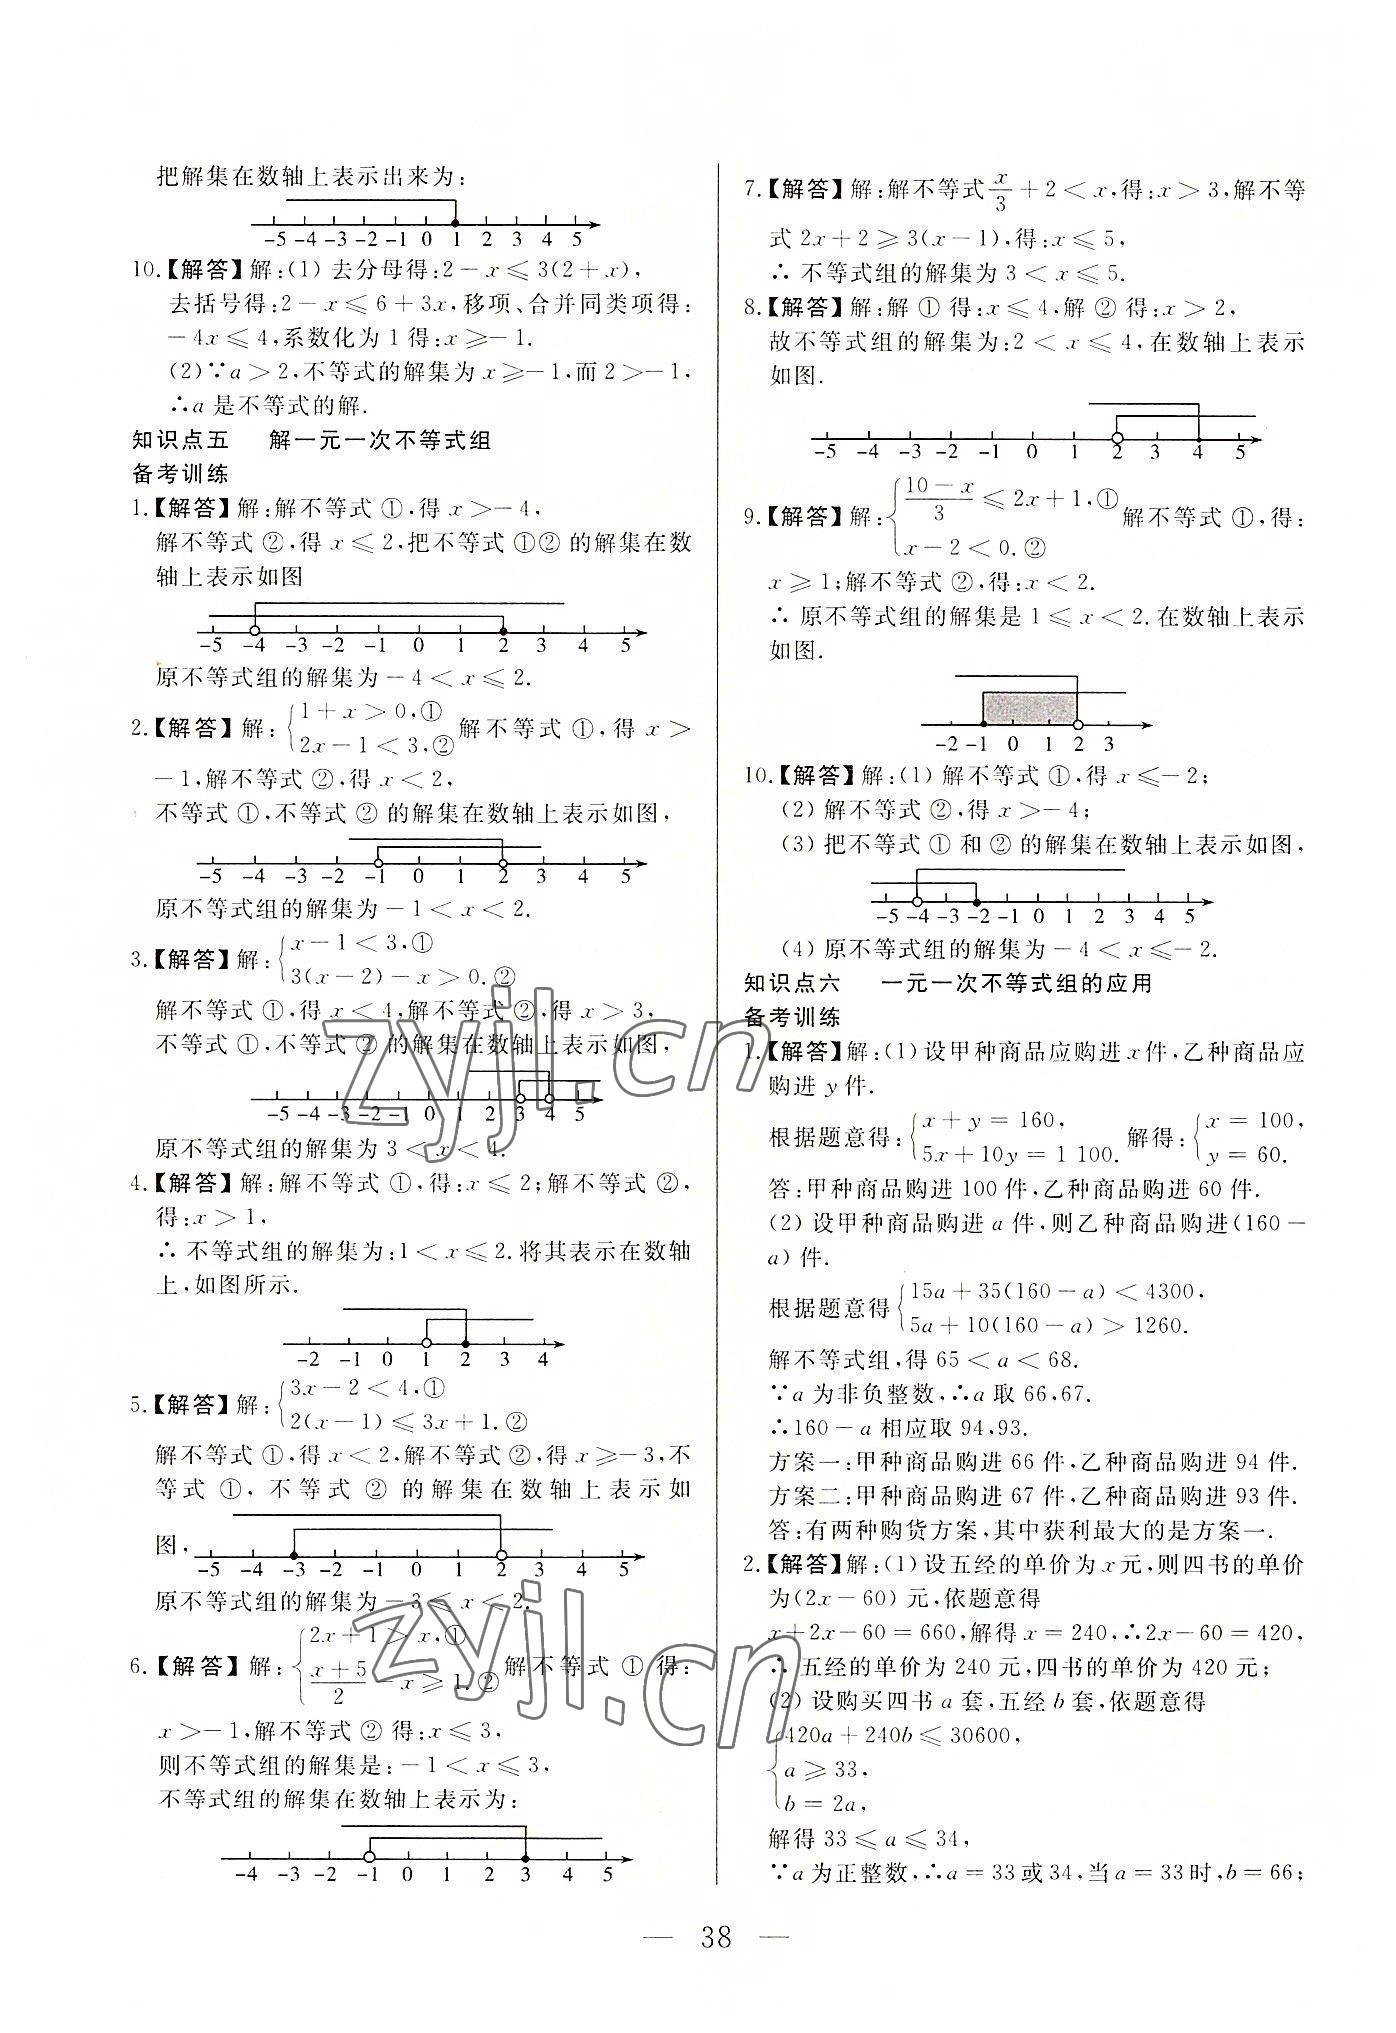 把解集在数轴上表示出来为:
-5 -4 -3 -2 -1 0 1 2 3 4 5
10.【解答】解:(1) 去分母得:2-x≤3(2+x),
去括号得:2-x≤6+3x,移项、合并同类项得:
-4x≤4,系数化为1得:x≥-1.
(2)∵a>2,不等式的解集为x≥-1,而2>-1,
∴a是不等式的解.
知识点五 解一元一次不等式组
备考训练
1.【解答】解:解不等式①,得x>-4,
解不等式②,得x≤2,把不等式①②的解集在数
轴上表示如图
-5 -4 -3 -2 -1 0 1 2 3 4 5
原不等式组的解集为-4<x≤2.
2.【解答】解:{1+x>0,① 2x-1<3,② 解不等式①,得x>
-1,解不等式②,得x<2,
不等式①,不等式②的解集在数轴上表示如图,
-5 -4 -3 -2 -1 0 1 2 3 4 5
原不等式组的解集为-1<x<2.
3.【解答】解:{x-1<3,① 3(x-2)-x>0.②
解不等式①,得x<4,解不等式②,得x>3,
不等式①,不等式②的解集在数轴上表示如图,
-5 -4 -3 -2 -1 0 1 2 3 4 5
原不等式组的解集为3<x<4.
4.【解答】解:解不等式①,得:x≤2;解不等式②,
得:x>1,
∴不等式组的解集为:1<x≤2.将其表示在数轴
上,如图所示.
-2 -1 0 1 2 3 4
5.【解答】解:{3x-2<4,① 2(x-1)≤3x+1.②
解不等式①,得x<2,解不等式②,得x≥-3,不
等式①,不等式②的解集在数轴上表示如
图,
-5 -4 -3 -2 -1 0 1 2 3 4 5
原不等式组的解集为-3≤x<2.
6.【解答】解:{2x+1>x,① (x+5)/2-x≥1.② 解不等式①得:
x>-1,解不等式②得:x≤3,
则不等式组的解集是:-1<x≤3,
不等式组的解集在数轴上表示为:
-4 -3 -2 -1 0 1 2 3 4 5
7.【解答】解:解不等式x/3+2<x,得:x>3,解不等
式2x+2≥3(x-1),得:x≤5,
∴不等式组的解集为3<x≤5.
8.【解答】解:解①得:x≤4,解②得:x>2,
故不等式组的解集为:2<x≤4,在数轴上表示
如图.
-5 -4 -3 -2 -1 0 1 2 3 4 5
9.【解答】解:{(10-x)/3≤2x+1,① x-2<0.② 解不等式①,得:
x≥1;解不等式②,得:x<2.
∴原不等式组的解集是1≤x<2.在数轴上表示
如图.
-2 -1 0 1 2 3
10.【解答】解:(1) 解不等式①,得x≤-2;
(2) 解不等式②,得x>-4;
(3) 把不等式①和②的解集在数轴上表示如图,
-5 -4 -3 -2 -1 0 1 2 3 4 5
(4) 原不等式组的解集为-4<x≤-2.
知识点六 一元一次不等式组的应用
备考训练
1.【解答】解:(1) 设甲种商品应购进x件,乙种商品应
购进y件.
根据题意得:{x+y=160, 5x+10y=1 100. 解得:{x=100, y=60.
答:甲种商品购进100件,乙种商品购进60件.
(2) 设甲种商品购进a件,则乙种商品购进(160-
a)件.
根据题意得{15a+35(160-a)<4300, 5a+10(160-a)>1260.
解不等式组,得65<a<68.
∵a为非负整数,∴a取66,67.
∴160-a相应取94,93.
方案一:甲种商品购进66件,乙种商品购进94件.
方案二:甲种商品购进67件,乙种商品购进93件.
答:有两种购货方案,其中获利最大的是方案一.
2.【解答】解:(1) 设五经的单价为x元,则四书的单价
为(2x-60)元,依题意得
x+2x-60=660,解得x=240,∴2x-60=420,
∴五经的单价为240元,四书的单价为420元;
(2) 设购买四书a套,五经b套,依题意得
{420a+240b≤30600,
a≥33,
b=2a,
解得33≤a≤34,
∵a为正整数,∴a=33或34,当a=33时,b=66;
— 38 —
zyjl.cn
zyjl.cn